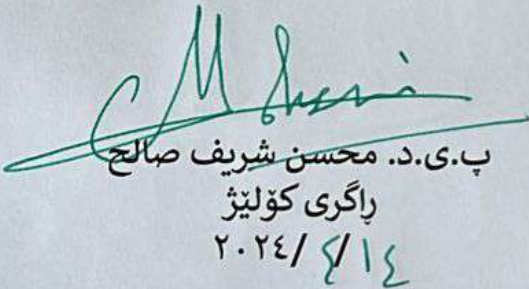 پ.ی.د. محسن شریف صالح
ڕاگری کۆلێژ
٢٠٢٤/٤/١٤